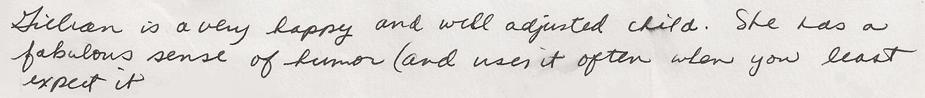 Gillian is a very happy and well adjusted child. She has a
fabulous sense of humor (and uses it often when you least
expect it